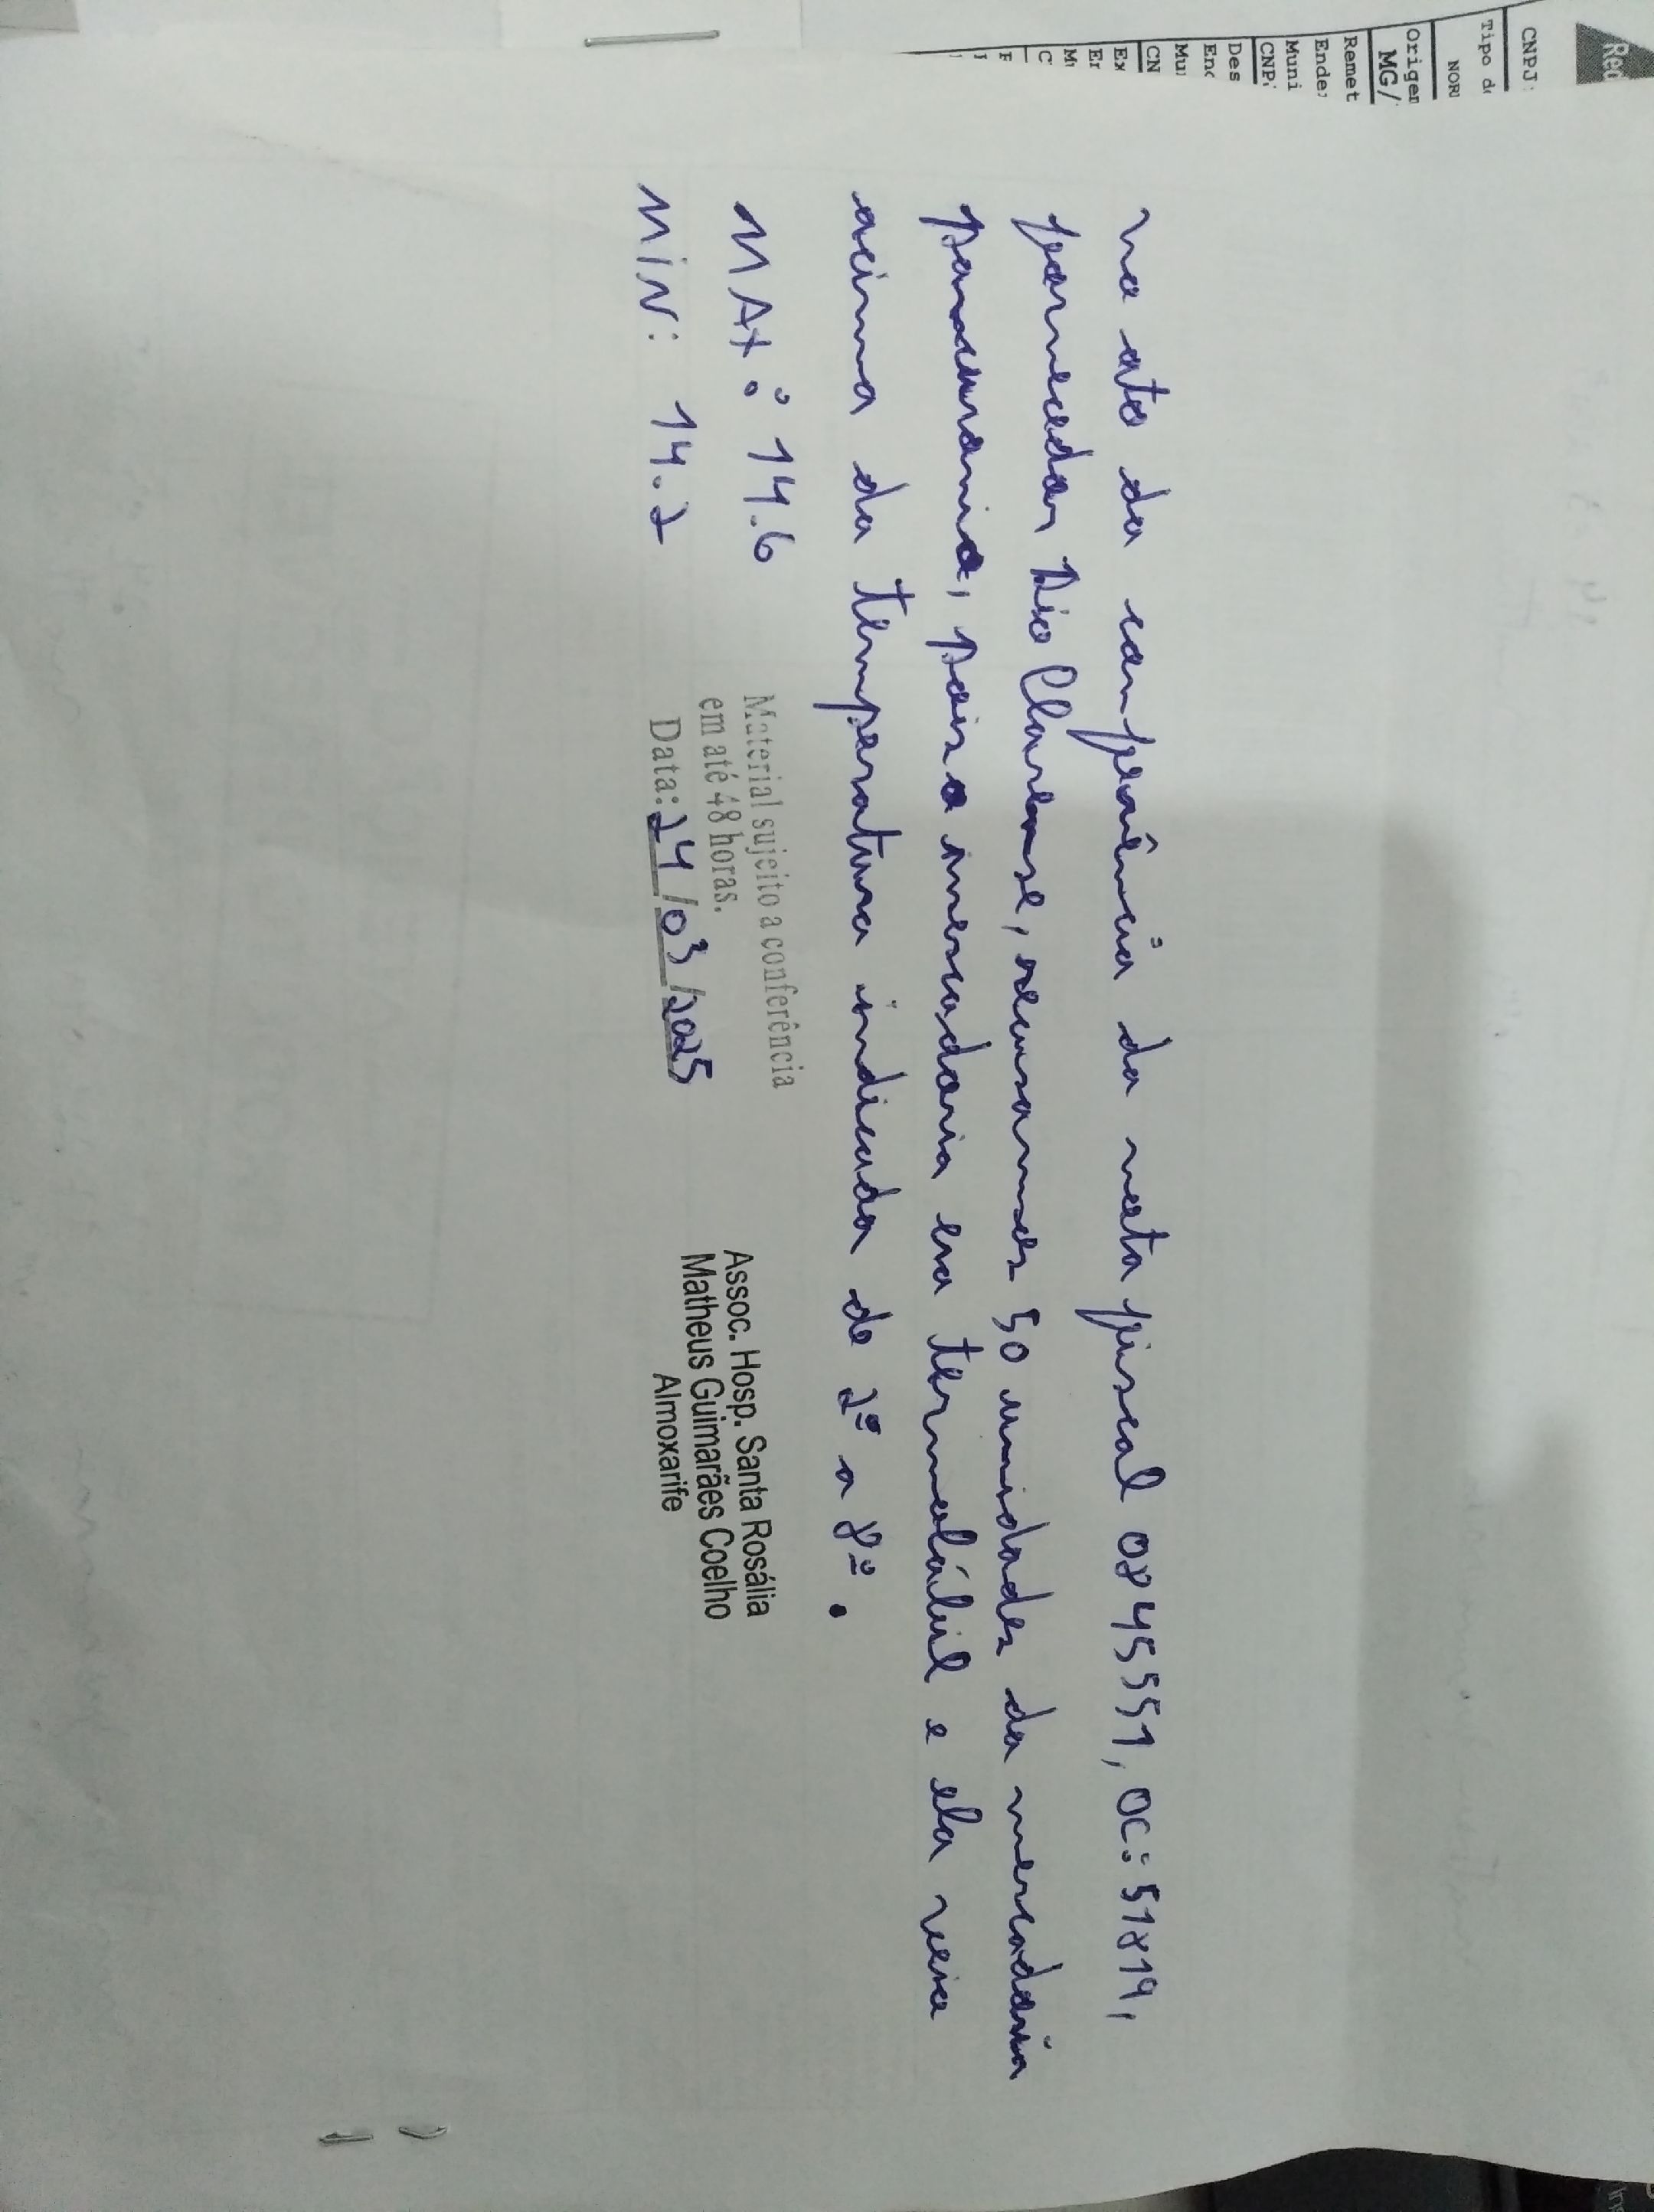 Rod
CNPJ:
Tipo d
NOR
Origem
MG/
Remet
Ende
Muni
CNP
Des
End
Mu
CN
Ex
En
M
C
F
I
no ato da conferência da nota fiscal 0845551, OC: 51819,
fornecedor Rio Clarense, recusamos 50 unidades da mercadoria
pancuronio, pois a mercadoria era termolábil e ela veio
acima da temperatura indicada de 2º a 8º.
MAX: 14.6
MIN: 14.2
Material sujeito a conferência
em até 48 horas.
Data: 24/03/2025
Assoc. Hosp. Santa Rosália
Matheus Guimarães Coelho
Almoxarife